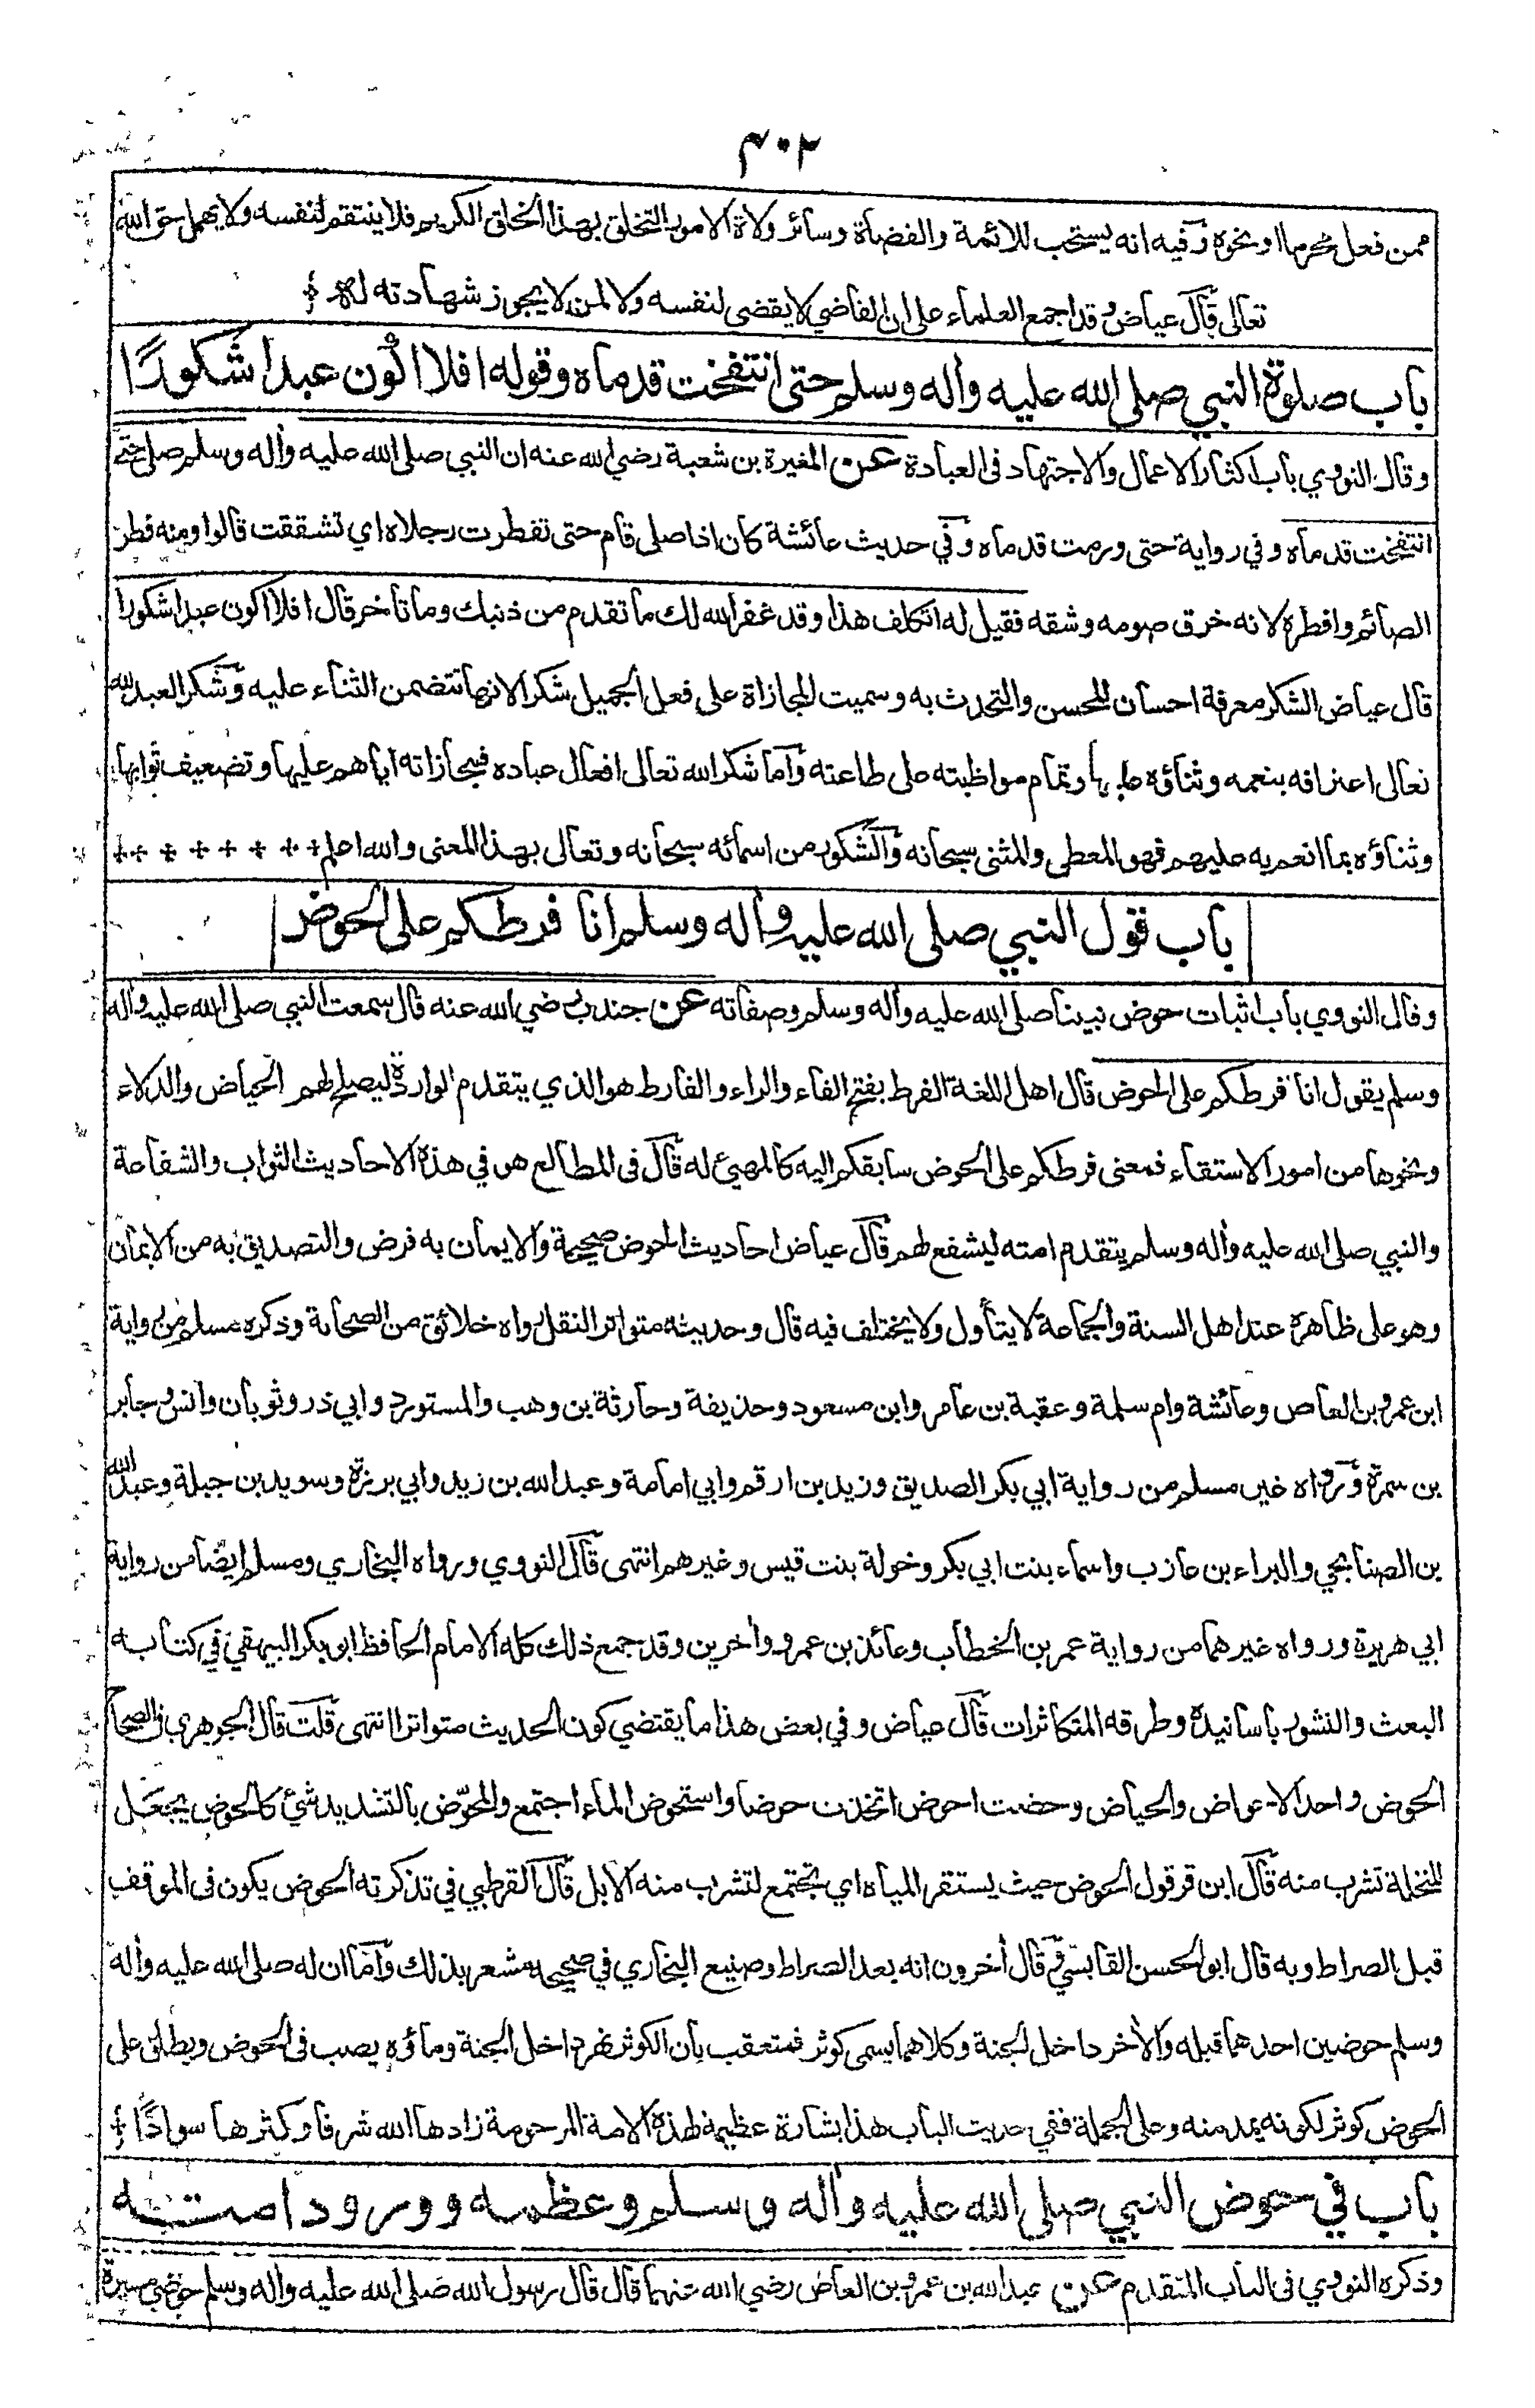 ٣٠٢
ممن فعل محرما او نحوه وفيه انه يستحب للائمة والقضاة وسائر ولاة الامور التخلق بهذا الخلق الكريم فلا ينتقم لنفسه ولا يهمل حق الله
تعالى قال عياض وقد اجمع العلماء على ان القاضي لا يقضى لنفسه ولا لمن لا يجوز شهادته له
باب صلوة النبي صلى الله عليه واٰله وسلم حتى انتفخت قدماه وقوله افلا اكون عبدا شكورًا
وقال النووي باب اكثار الاعمال والاجتهاد فى العبادة عن المغيرة بن شعبة رضي الله عنه ان النبي صلى الله عليه واٰله وسلم صلى حتى
انتفخت قدماه وفي رواية حتى ورمت قدماه وفي حديث عائشة كان اذا صلى قام حتى تفطرت رجلاه اي تشققت قالوا ومنه فطر
الصائم وافطره لانه خرق صومه وشقه فقيل له اتكلف هذا وقد غفر الله لك ما تقدم من ذنبك وما تأخر قال افلا اكون عبدا شكورا
قال عياض الشكر معرفة احسان المحسن والتحدث به وسميت المجازاة على فعل الجميل شكرا لانها تتضمن الثناء عليه وشكر العبد لله
تعالى اعترافه بنعمه وثناؤه عليها وتمام مواظبته على طاعته وأما شكر الله تعالى افعال عباده فمجازاته اياهم عليها وتضعيف ثوابها
وثناؤه بما انعم به عليهم فهو المعطى والمثنى سبحانه والشكور من اسمائه سبحانه وتعالى بهذا المعنى والله اعلم
باب قول النبي صلى الله عليه واٰله وسلم انا فرطكم على الحوض
وقال النووي باب اثبات حوض نبينا صلى الله عليه واٰله وسلم وصفاته عن جندب رضي الله عنه قال سمعت النبي صلى الله عليه واٰله
وسلم يقول انا فرطكم على الحوض قال اهل اللغة الفرط بفتح الفاء والراء والفارط هو الذي يتقدم الواردة ليصلح لهم الحياض والدلاء
ونحوها من امور الاستقاء فمعنى فرطكم على الحوض سابقكم اليه كالمهيئ له قال فى المطالع هو في هذه الاحاديث الثواب والشفاعة
والنبي صلى الله عليه واٰله وسلم يتقدم امته ليشفع لهم قال عياض احاديث الحوض صحيحة والايمان به فرض والتصديق به من الايمان
وهو على ظاهره عند اهل السنة والجماعة لا يتأول ولا يختلف فيه قال وحديثه متواتر النقل رواه خلائق من الصحابة وذكره مسلم من رواية
ابن عمرو بن العاص وعائشة وام سلمة وعقبة بن عامر وابن مسعود وحذيفة وحارثة بن وهب والمستورد وابي ذر وثوبان وانس وجابر
بن سمرة ورواه غير مسلم من رواية ابي بكر الصديق وزيد بن ارقم وابي امامة وعبد الله بن زيد وابي برزة وسويد بن جبلة وعبد الله
بن الصنابحي والبراء بن عازب واسماء بنت ابي بكر وخولة بنت قيس وغيرهم انتهى قال النووي ورواه البخاري ومسلم ايضًا من رواية
ابي هريرة ورواه غيرهما من رواية عمر بن الخطاب وعائذ بن عمرو واٰخرين وقد جمع ذلك كله الامام الحافظ ابو بكر البيهقي في كتابه
البعث والنشور باسانيده وطرقه المتكاثرات قال عياض وفي بعض هذا ما يقتضي كون الحديث متواترا انتهى قلت قال الجوهري فى الصحاح
الحوض واحد الاحواض والحياض وحضت احوض اتخذت حوضا واستحوض الماء اجتمع والمحوّض بالتشديد شئ كالحوض يجعل
للنخلة تشرب منه قال ابن قرقول الحوض حيث يستقر المياه اي تجتمع لتشرب منه الابل قال القرطبي في تذكرته الحوض يكون فى الموقف
قبل الصراط وبه قال ابو الحسن القابسي وقال اٰخرون انه بعد الصراط وصنيع البخاري في صحيحه مشعر بذلك وأما ان له صلى الله عليه واٰله
وسلم حوضين احدهما قبله والاٰخر داخل الجنة وكلاهما يسمى كوثر فمتعقب بان الكوثر نهر داخل الجنة وماؤه يصب فى الحوض ويطلق على
الحوض كوثر لكونه يمد منه وعلى الجملة ففي حديث الباب هذا بشارة عظيمة لهذه الامة المرحومة زادها الله شرفا وكثرها سوادًا
باب في حوض النبي صلى الله عليه واٰله وسلم وعظمه وورود امته
وذكره النووي فى الباب المتقدم عن عبد الله بن عمرو بن العاص رضي الله عنهما قال قال رسول الله صلى الله عليه واٰله وسلم حوضي مسيرة